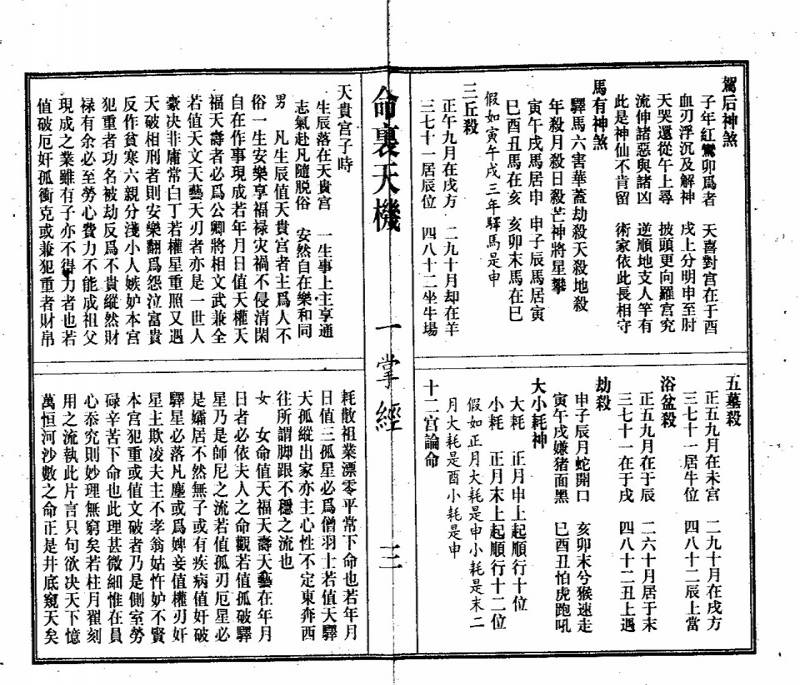 駕后神煞
子年紅鸞卯爲者　天喜對宮在于酉
血刃浮沉及解神　戌上分明申至肘
天哭還從午上尋　披頭更向羅宮究
流伸諸惡與諸凶　逆順地支人竿有
此是神仙不肯留　術家依此長相守
馬有神煞
驛馬六害華蓋劫殺天殺地殺
年殺月殺日殺芒神將星攀
寅午戌馬居申　申子辰馬居寅
巳酉丑馬在亥　亥卯未馬在巳
假如寅午戌三年驛馬是申
三丘殺
正午九月在戌方　二九十月却在羊
三七十一居辰位　四八十二坐牛場
五墓殺
正五九月在未宮　二九十月在戌方
三七十一居牛位　四八十二辰上當
浴盆殺
正五九月在于辰　二六十月居于末
三七十一在于戌　四八十二丑上遇
劫殺
申子辰月蛇開口　亥卯未兮猴速走
寅午戌嫌猪面黑　巳酉丑怕虎跑吼
大小耗神
大耗　正月申上起順行十位
小耗　正月未上起順行十二位
假如正月大耗是申小耗是未二
月大耗是酉小耗是申
十二宮論命
命裏天機　一掌經　三
天貴宮子時
生辰落在天貴宮　一生事上主享通
志氣赳凡隨脱俗　安然自在樂和同
男　凡生辰值天貴宮者主爲人不
俗一生安樂享福禄灾禍不侵清閑
自在作事現成若年月日值天權天
福天壽者必爲公卿將相文武兼全
若值天文天藝天刃者亦是一世人
豪决非庸常白丁若權星重照又遇
天破相刑者則安樂翻爲怨泣富貴
反作貧寒六親分淺小人嫉妒本宮
犯重者功名被劫反爲不貴縱然財
禄有余必至勞心費力不能成祖父
現成之業雖有子亦不得力者也若
值破厄奸孤衝克或兼犯重者財帛
耗散祖業漂零平常下命也若年月
日值三孤星必爲僧羽士若值天驛
天孤縱出家亦主心性不定東奔西
往所謂脚跟不穩之流也
女　女命值天福天壽天藝在年月
日者必依夫人之命觀若值孤破驛
星乃是師尼之流若值孤刃厄星必
是孀居不然無子或有疾病值奸破
驛星必落凡塵或爲婢妾值權刃奸
星主欺凌夫主不孝翁姑忤妒不賢
本宮犯重或值文破者乃是側室勞
碌辛苦下命也此理甚微細惟在員
心忝究則妙理無窮矣若柱月翟刻
用之流執此片言只句欲决天下憶
萬恒河沙數之命正是井底窺天矣